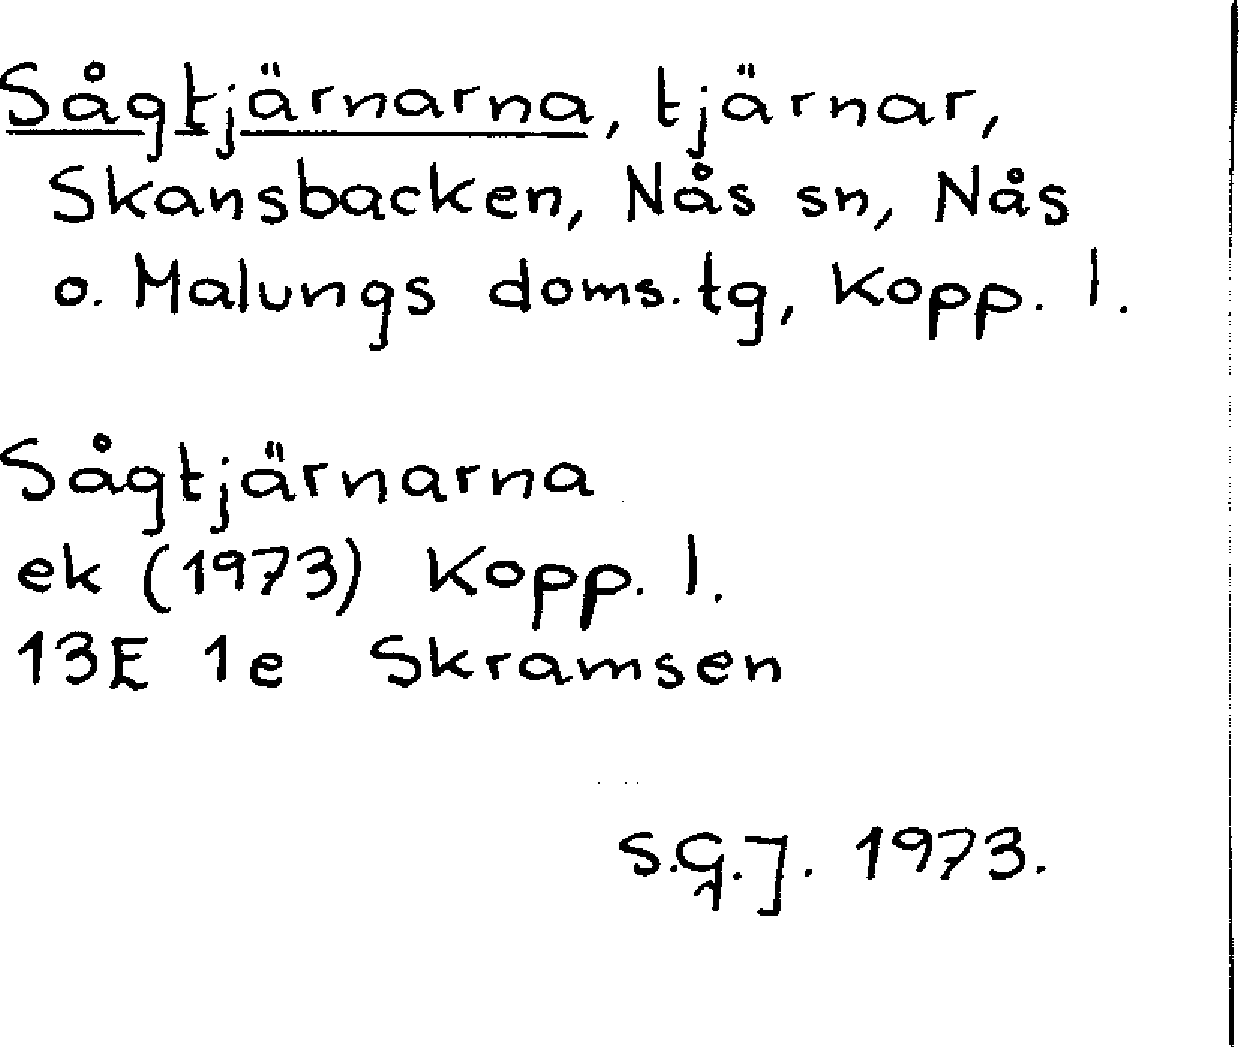 Sågtjärnarna, tjärnar,
Skansbacken, Nås sn, Nås
o. Malungs doms.tg, Kopp. l.
Sågtjärnarna
ek (1973) Kopp. l.
13E 1e Skramsen
S.G.J. 1973.